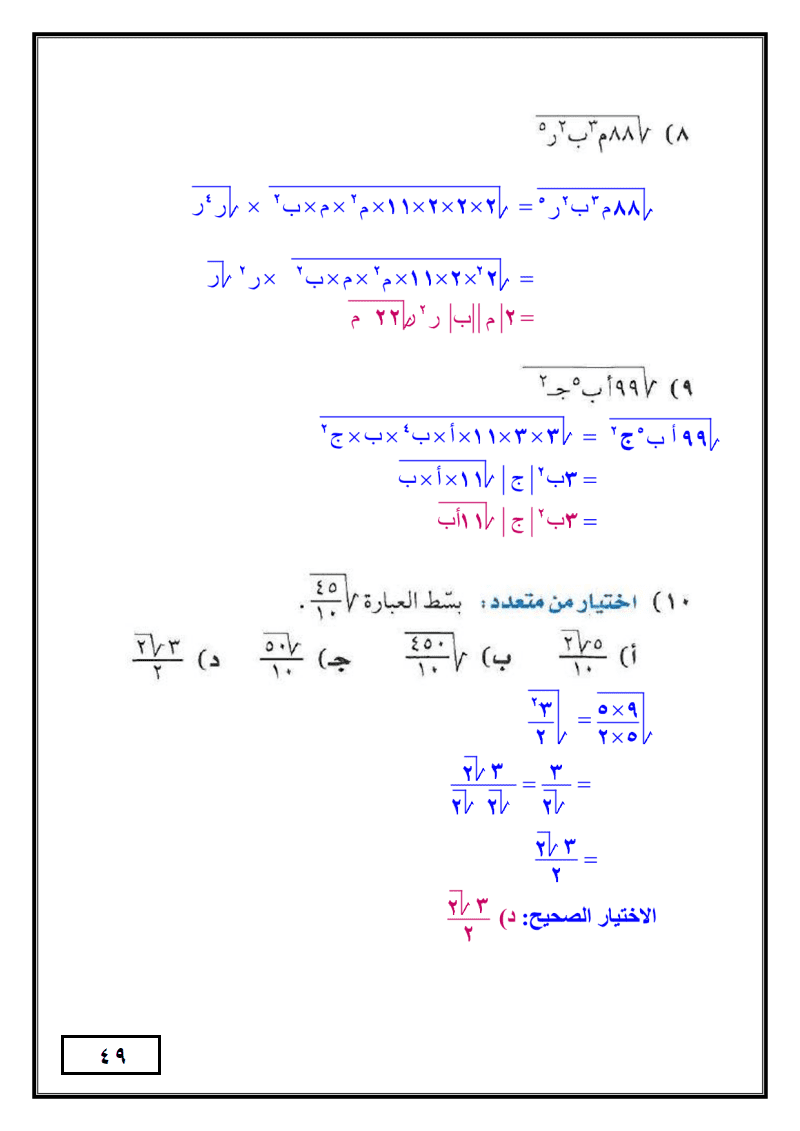 ٨) √٨٨م³ب²ر⁵
√٨٨م³ب²ر⁵ = √٢×٢×٢×١١×م²×م×ب² × √ر⁴ر
= √٢²×٢×١١×م²×م×ب² ×ر² √ر
= ٢|م||ب| ر² √٢٢ م ر
٩) √٩٩أ ب⁵جـ²
√٩٩أ ب⁵ج² = √٣×٣×١١×أ×ب⁴×ب×ج²
= ٣ب²|ج| √١١×أ×ب
= ٣ب²|ج| √١١أب
١٠) اختيار من متعدد: بسّط العبارة √(٤٥/١٠) .
أ) ٥√٢/١٠ ب) √(٤٥٠/١٠) جـ) √٥٠/١٠ د) ٣√٢/٢
√(٩×٥/٥×٢) = √(٣²/٢)
= ٣/√٢ = ٣√٢/√٢ √٢
= ٣√٢/٢
الاختيار الصحيح: د) ٣√٢/٢
٤٩